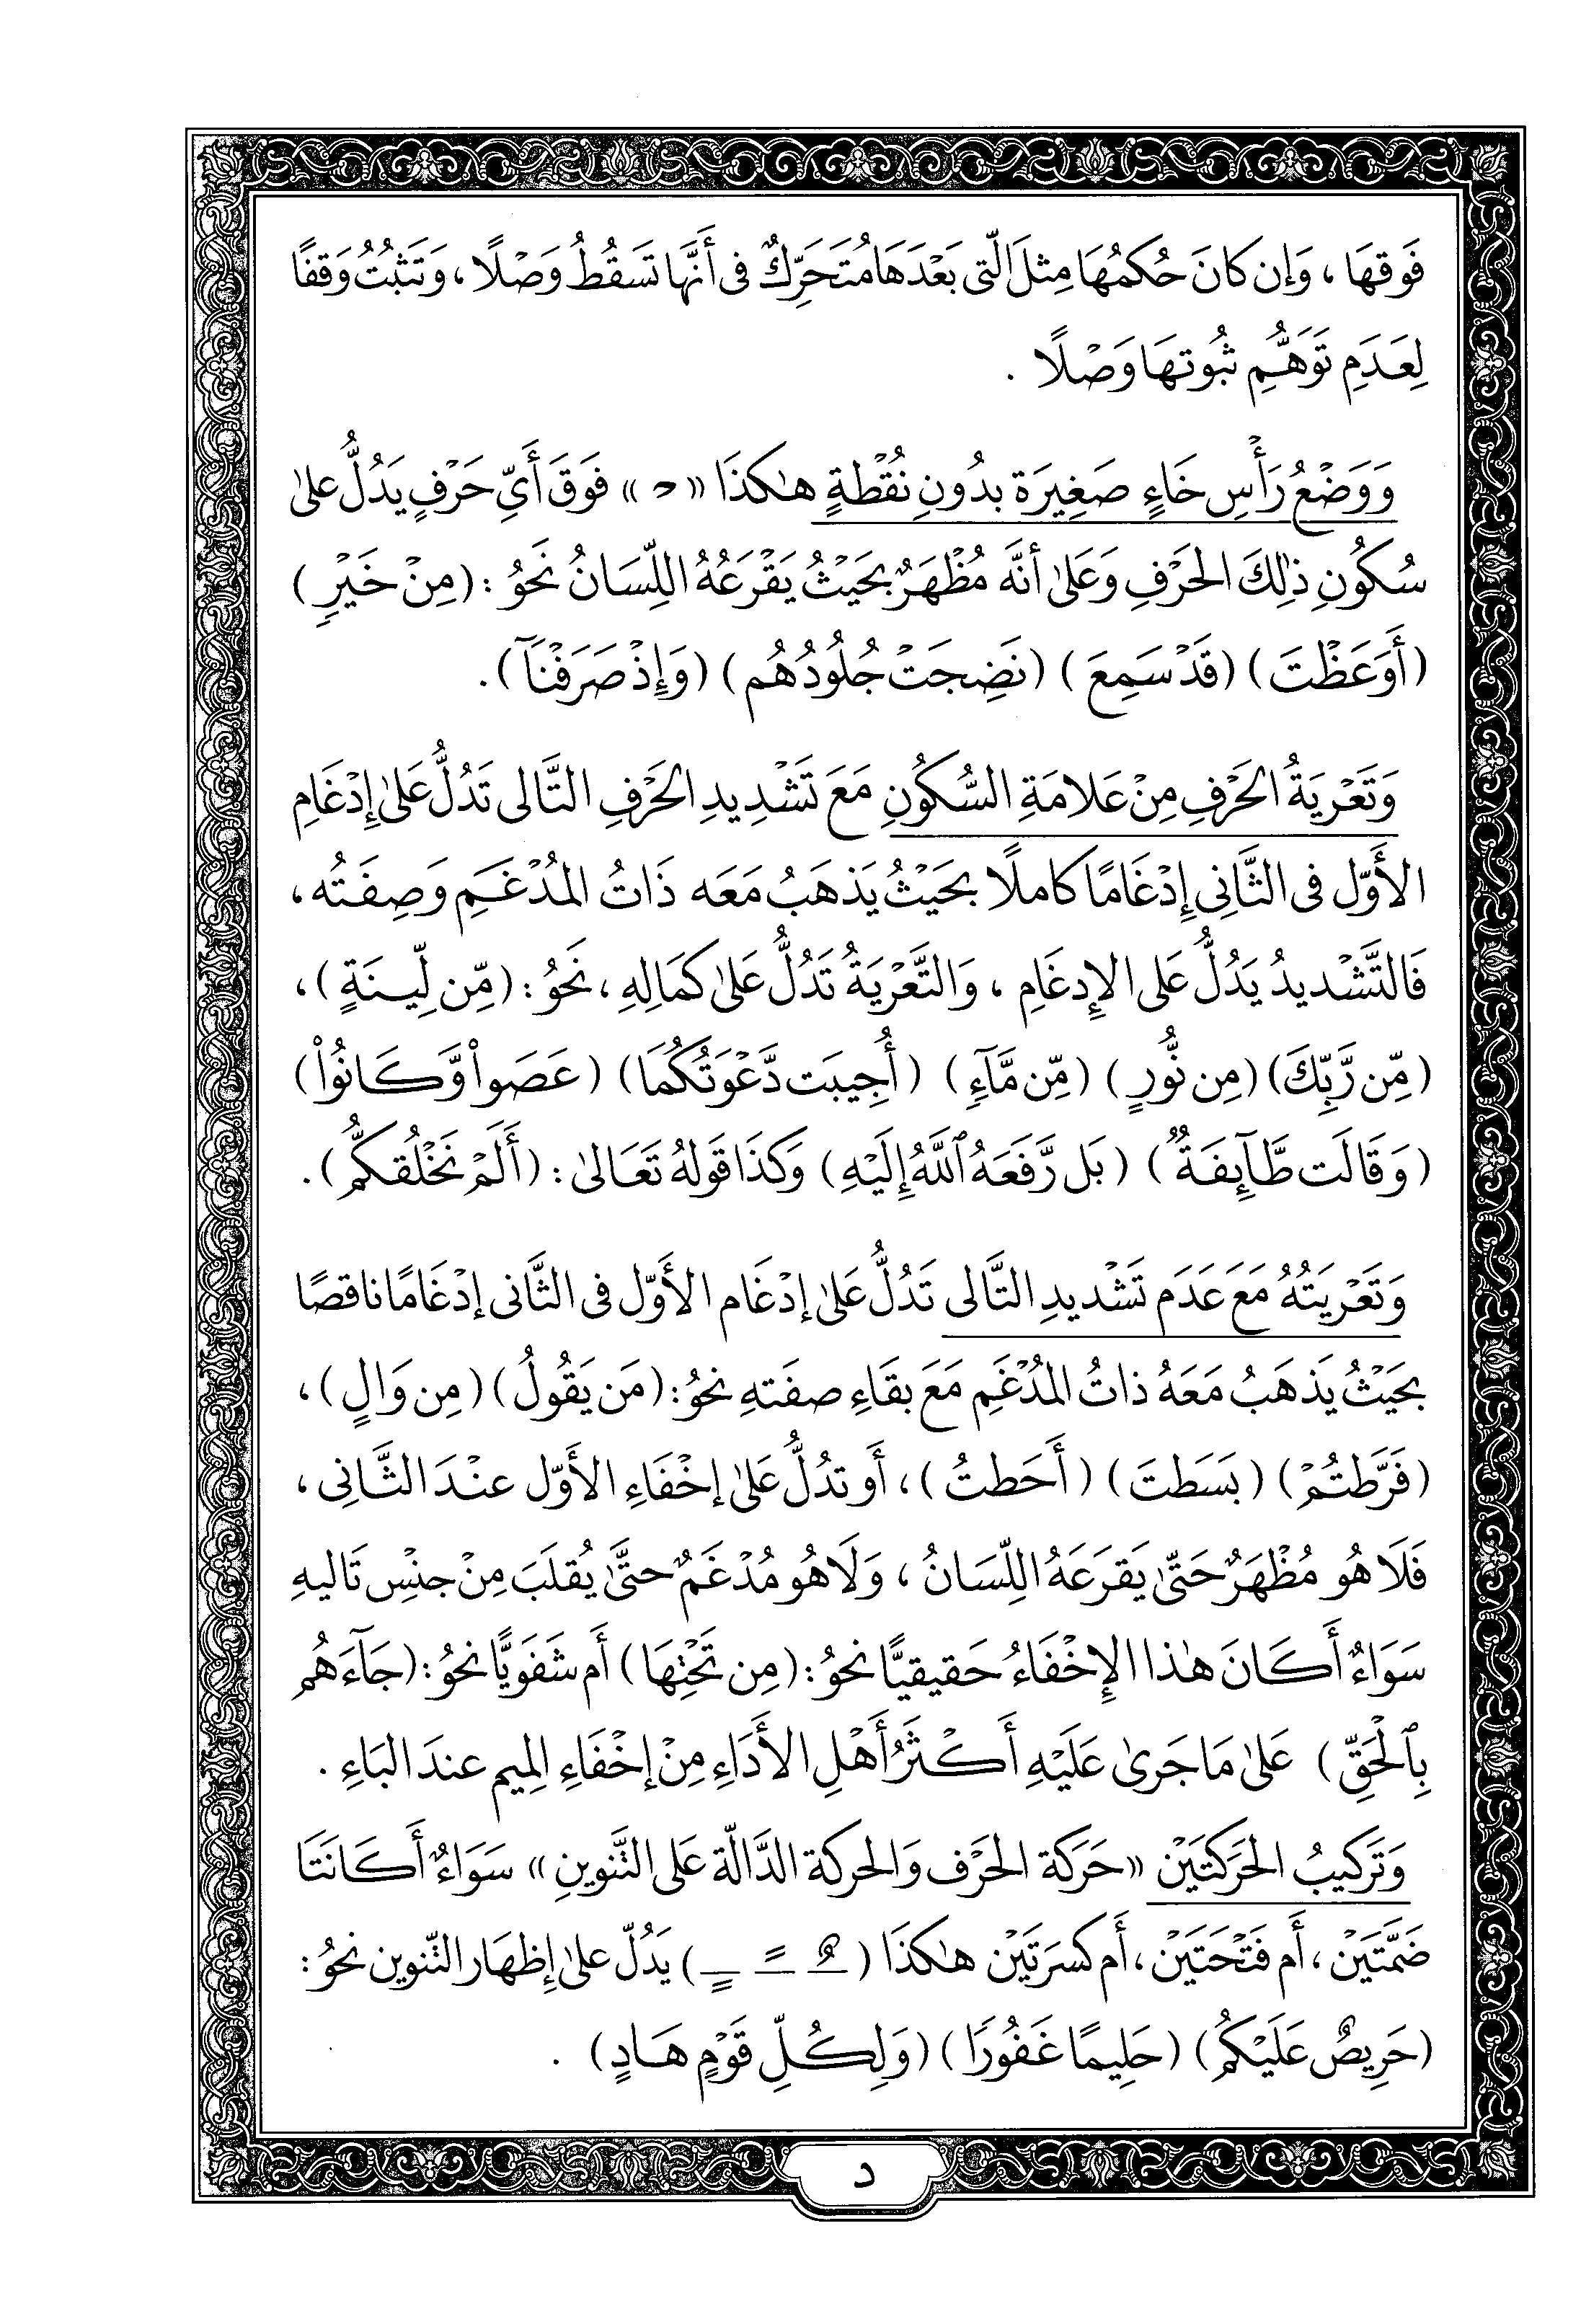 فَوقهَا ، وَإن كانَ حُكمُهَا مِثلَ الّتى بَعْدَهَا مُتَحَرِّكٌ فى أَنَّهَا تَسقُطُ وَصْلًا ، وَتَثبُتُ وَقفًا
لِعَدَمِ تَوَهُّمِ ثبُوتهَا وَصْلًا .
وَوَضْعُ رَأْسِ خَاءٍ صَغِيرَة بدُونِ نُقْطةٍ هٰكذَا « ح » فَوقَ أَيِّ حَرْفٍ يَدُلُّ علىٰ
سُكُونِ ذٰلِكَ الحَرْفِ وَعَلىٰ أنَّه مُظْهَرٌ بحَيْثُ يَقْرَعُهُ اللِّسَانُ نَحوُ : (مِنْ خَيْرٍ )
(أَوَعَظْتَ ) (قَدْ سَمِعَ ) (نَضِجَتْ جُلُودُهُم ) (وَإِذْ صَرَفْنَآ ) .
وَتَعْرِيَةُ الحَرْفِ مِنْ عَلامَةِ السُّكُونِ مَعَ تَشْدِيدِ الحَرْفِ التَّالى تَدُلُّ عَلىٰ إِدْغَامِ
الأَوّل فى الثَّانِى إِدْغَامًا كاملًا بحَيْثُ يَذهَبُ مَعَه ذَاتُ المُدْغَمِ وَصِفَتُه ،
فَالتَّشْديدُ يَدُلُّ عَلى الإِدغَامِ ، وَالتَّعْرِيَةُ تَدُلُّ عَلىٰ كمَالِهِ ، نَحوُ : (مِّن لِّينَةٍ ) ،
(مِّن رَّبِّكَ) (مِن نُّورٍ ) (مِّن مَّآءٍ ) (أُجِيبَت دَّعْوَتُكُمَا ) (عَصَوا۟ وَّكَانُوا۟ )
(وَقَالَت طَّآئِفَةٌ ) (بَل رَّفَعَهُ ٱللَّهُ إِلَيْهِ ) وَكذَا قَولهُ تَعَالىٰ : (أَلَمْ نَخْلُقكُّم ) .
وَتَعْريَتُهُ مَعَ عَدَم تَشْديدِ التَّالى تَدُلُّ عَلىٰ إدْغَام الأَوّل فى الثَّانى إدْغَامًا ناقصًا
بحَيْثُ يَذهَبُ مَعَهُ ذاتُ المُدْغَمِ مَعَ بقَاءِ صفَتهِ نحوُ : (مَن يَقُولُ ) (مِن وَالٍ ) ،
(فَرَّطتُمْ ) (بَسَطتَ ) (أَحَطتُ ) ، أَو تدُلُّ عَلىٰ إخْفَاءِ الأَوّل عنْدَ الثَّانِى ،
فَلَا هُو مُظْهَرٌ حَتّىٰ يَقرَعَهُ اللِّسَانُ ، وَلَا هُو مُدْغَمٌ حتَّىٰ يُقلَبَ مِنْ جنْسِ تَاليهِ
سَوَاءٌ أَكَانَ هٰذا الإِخْفَاءُ حَقيقيًّا نحوُ : (مِن تَحْتِهَا ) أَم شَفَويًّا نحوُ : (جَآءَهُم
بِٱلْحَقِّ ) عَلىٰ مَا جَرىٰ عَلَيْهِ أَكْثَرُ أَهْلِ الأَدَاءِ مِنْ إخْفَاءِ المِيم عندَ البَاءِ .
وَتَركيبُ الحَرَكتَيْن « حَرَكة الحَرْف وَالحركة الدَّالّة عَلى التَّنوينِ » سَوَاءٌ أَكَانَتَا
ضَمَّتَيْن ، أَم فَتْحَتَيْن ، أَم كسرَتَيْن هٰكذَا ( ـٌ ـً ـٍ ) يَدُلّ علىٰ إظهَار التّنوين نحوُ :
(حَرِيصٌ عَلَيْكُم ) (حَلِيمًا غَفُورًا ) (وَلِكُلِّ قَوْمٍ هَادٍ ) .
د